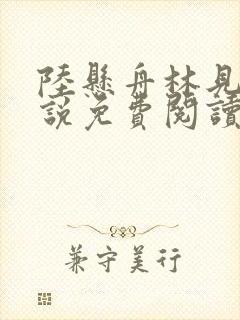 陸懸舟林見
說免費閱讀
兼守美行